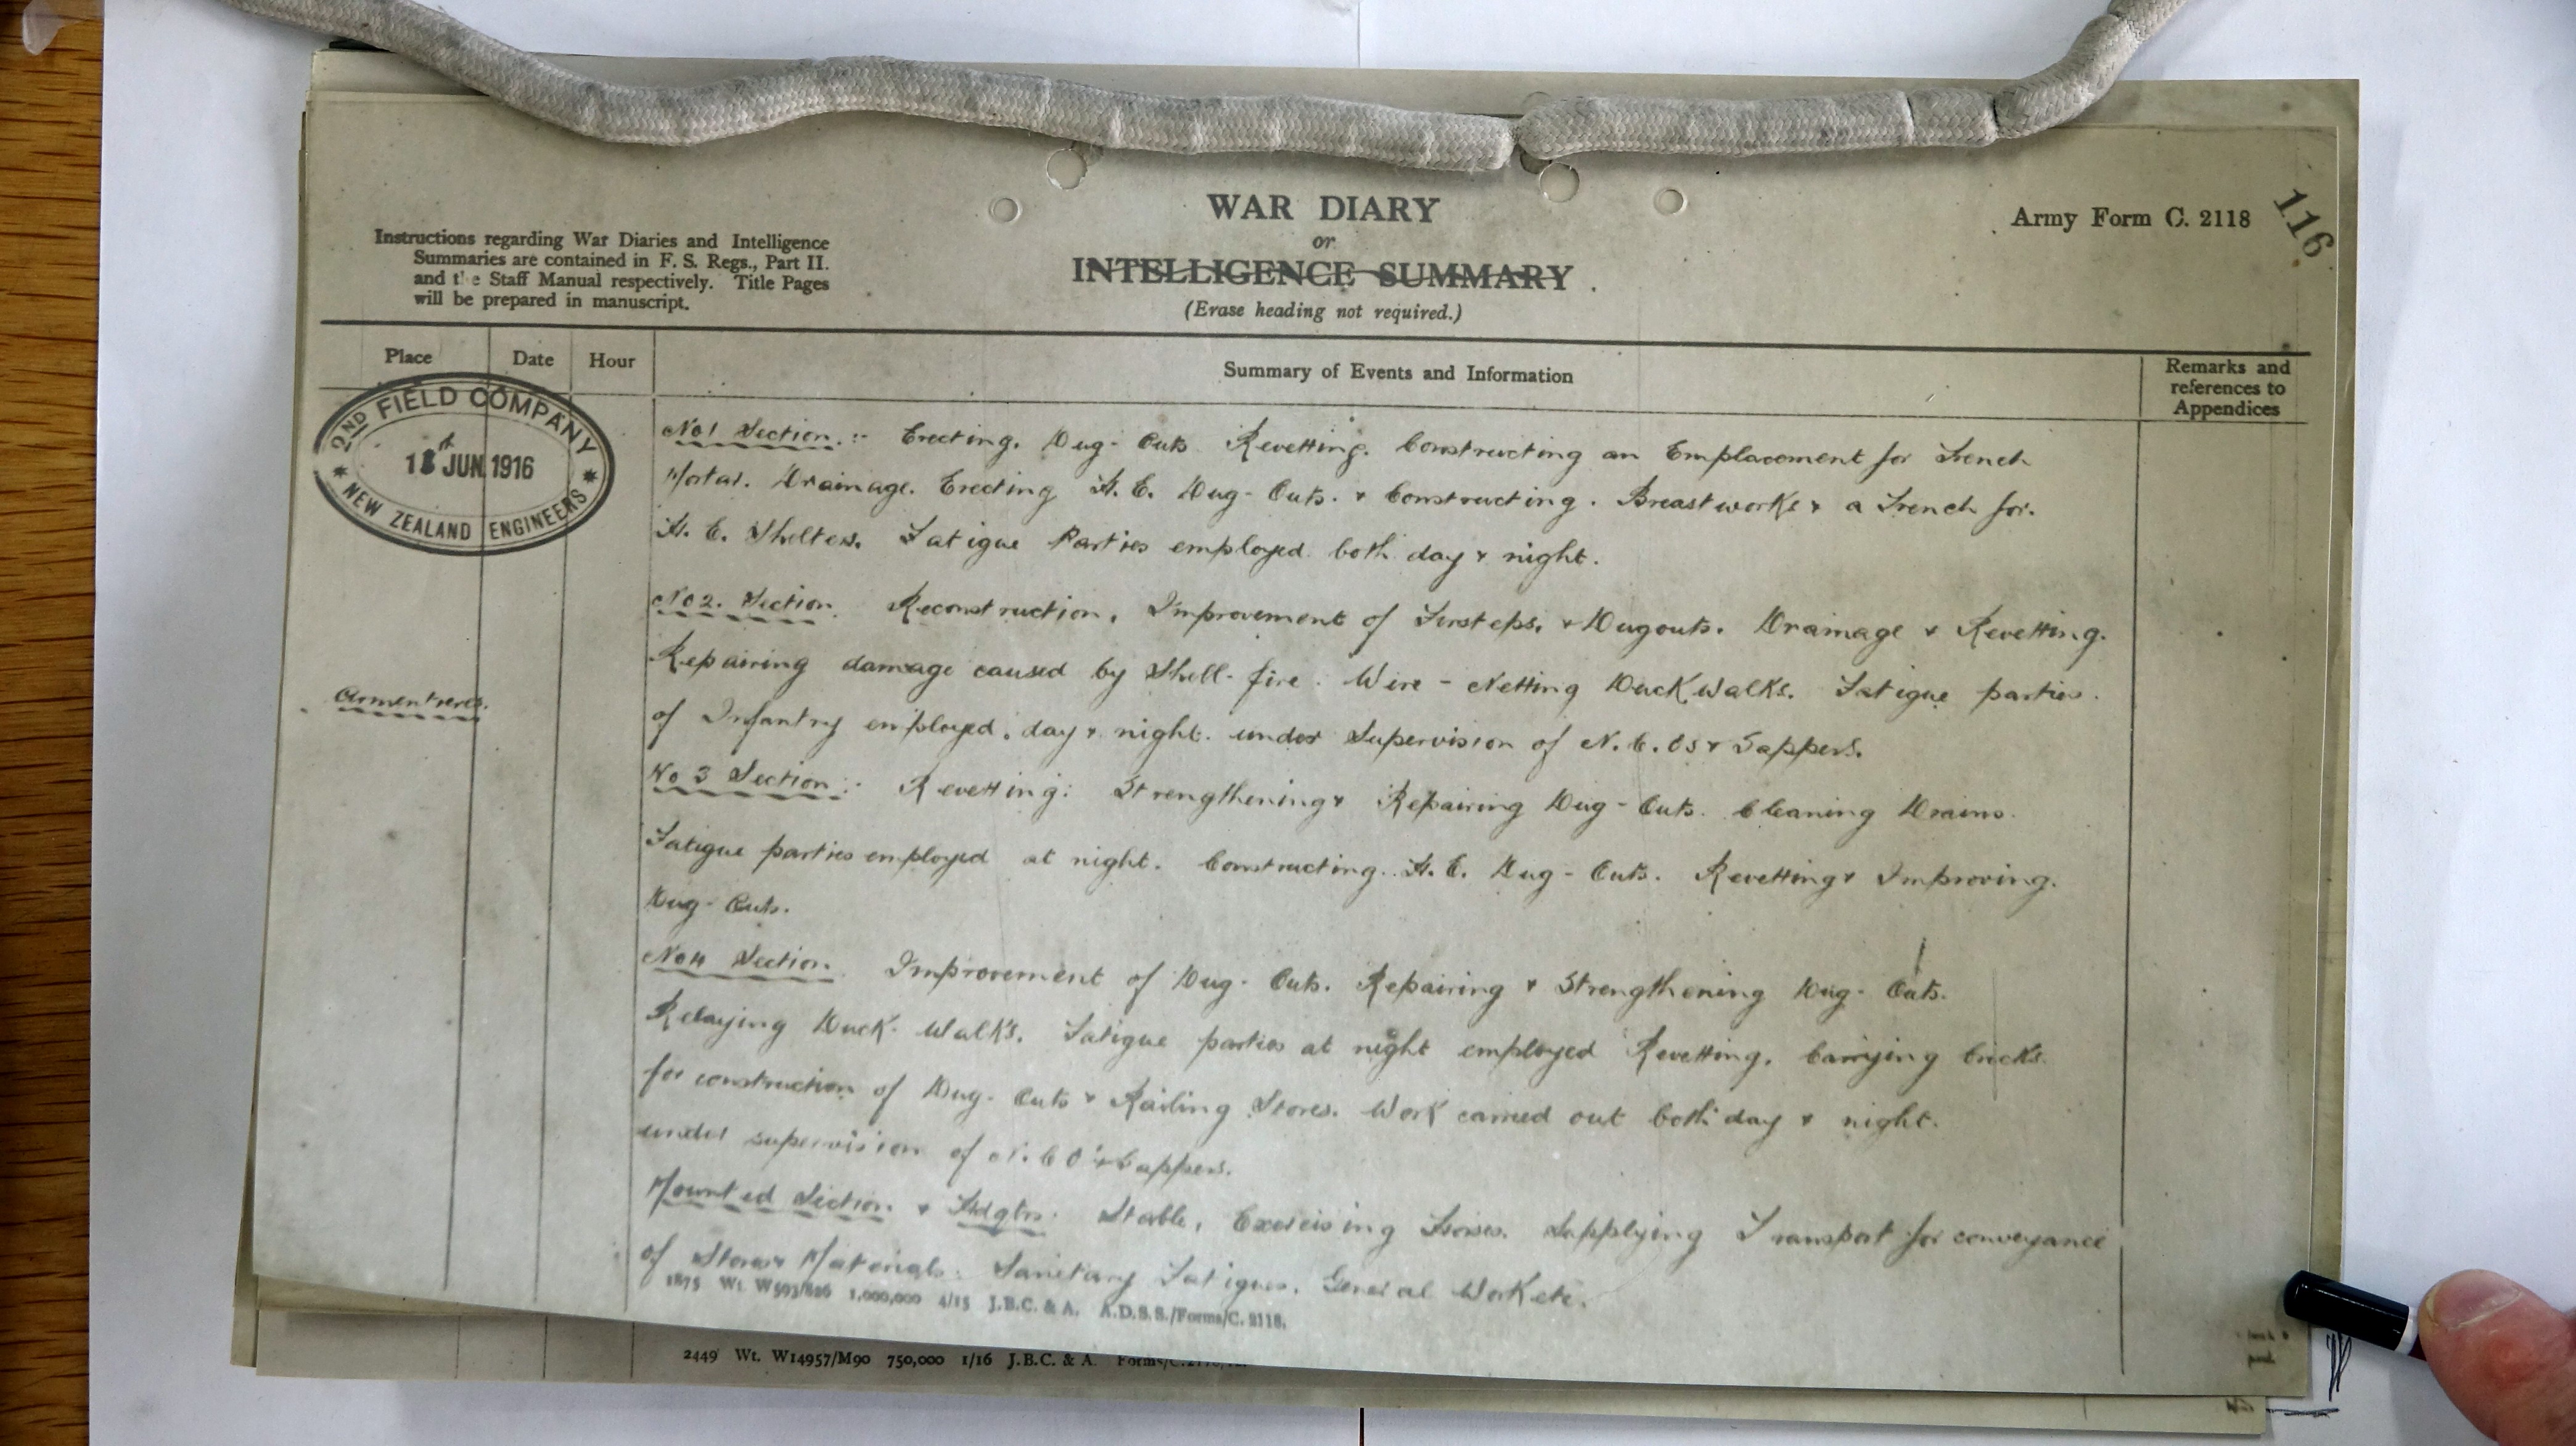 116
WAR DIARY
or
INTELLIGENCE SUMMARY
(Erase heading not required.)
Army Form C. 2118
Instructions regarding War Diaries and Intelligence
Summaries are contained in F. S. Regs., Part II.
and the Staff Manual respectively. Title Pages
will be prepared in manuscript.
Place
Date
Hour
Summary of Events and Information
Remarks and
references to
Appendices
2ND FIELD COMPANY
JUN 1916
NEW ZEALAND ENGINEERS
No 1 Section. :- Erecting. Dug-Outs Revetting. Constructing an Emplacement for Trench
Mortar. Drainage. Erecting H. E. Dug-Outs. & Constructing. Breastworks & a Trench for.
H. E. Shelters. Fatigue Parties employed both day & night.
No 2. Section. Reconstruction, Improvement of Firsteps. & Dugouts. Drainage & Revetting.
Repairing damage caused by Shell-fire. Wire-Netting Duck Walks. Fatigue parties.
Armentieres.
of Infantry employed, day & night. under Supervision of N. C. Os & Sappers.
No 3 Section:- Revetting: Strengthening & Repairing Dug-Outs. Cleaning Drains.
Fatigue parties employed at night. Constructing. H. E. Dug-Outs. Revetting & Improving.
Dug-Outs.
No 4 Section. Improvement of Dug-Outs. Repairing & Strengthening Dug-Outs.
Relaying Duck-Walks. Fatigue parties at night employed Revetting, Carrying bricks
for construction of Dug-Outs & Railing Stores. Work carried out both day & night.
under supervision of N. C O's & Sappers.
Mounted Section & Hdqtrs. Stable, Exercising Horses. Supplying Transport for conveyance
of Stores & Materials. Sanitary Fatigues. General Work etc.
1875 Wt. W593/826 1,000,000 4/15 J.B.C. & A. A.D.S.S./Forms/C. 2118.
2449 Wt. W14957/M90 750,000 1/16 J.B.C. & A.